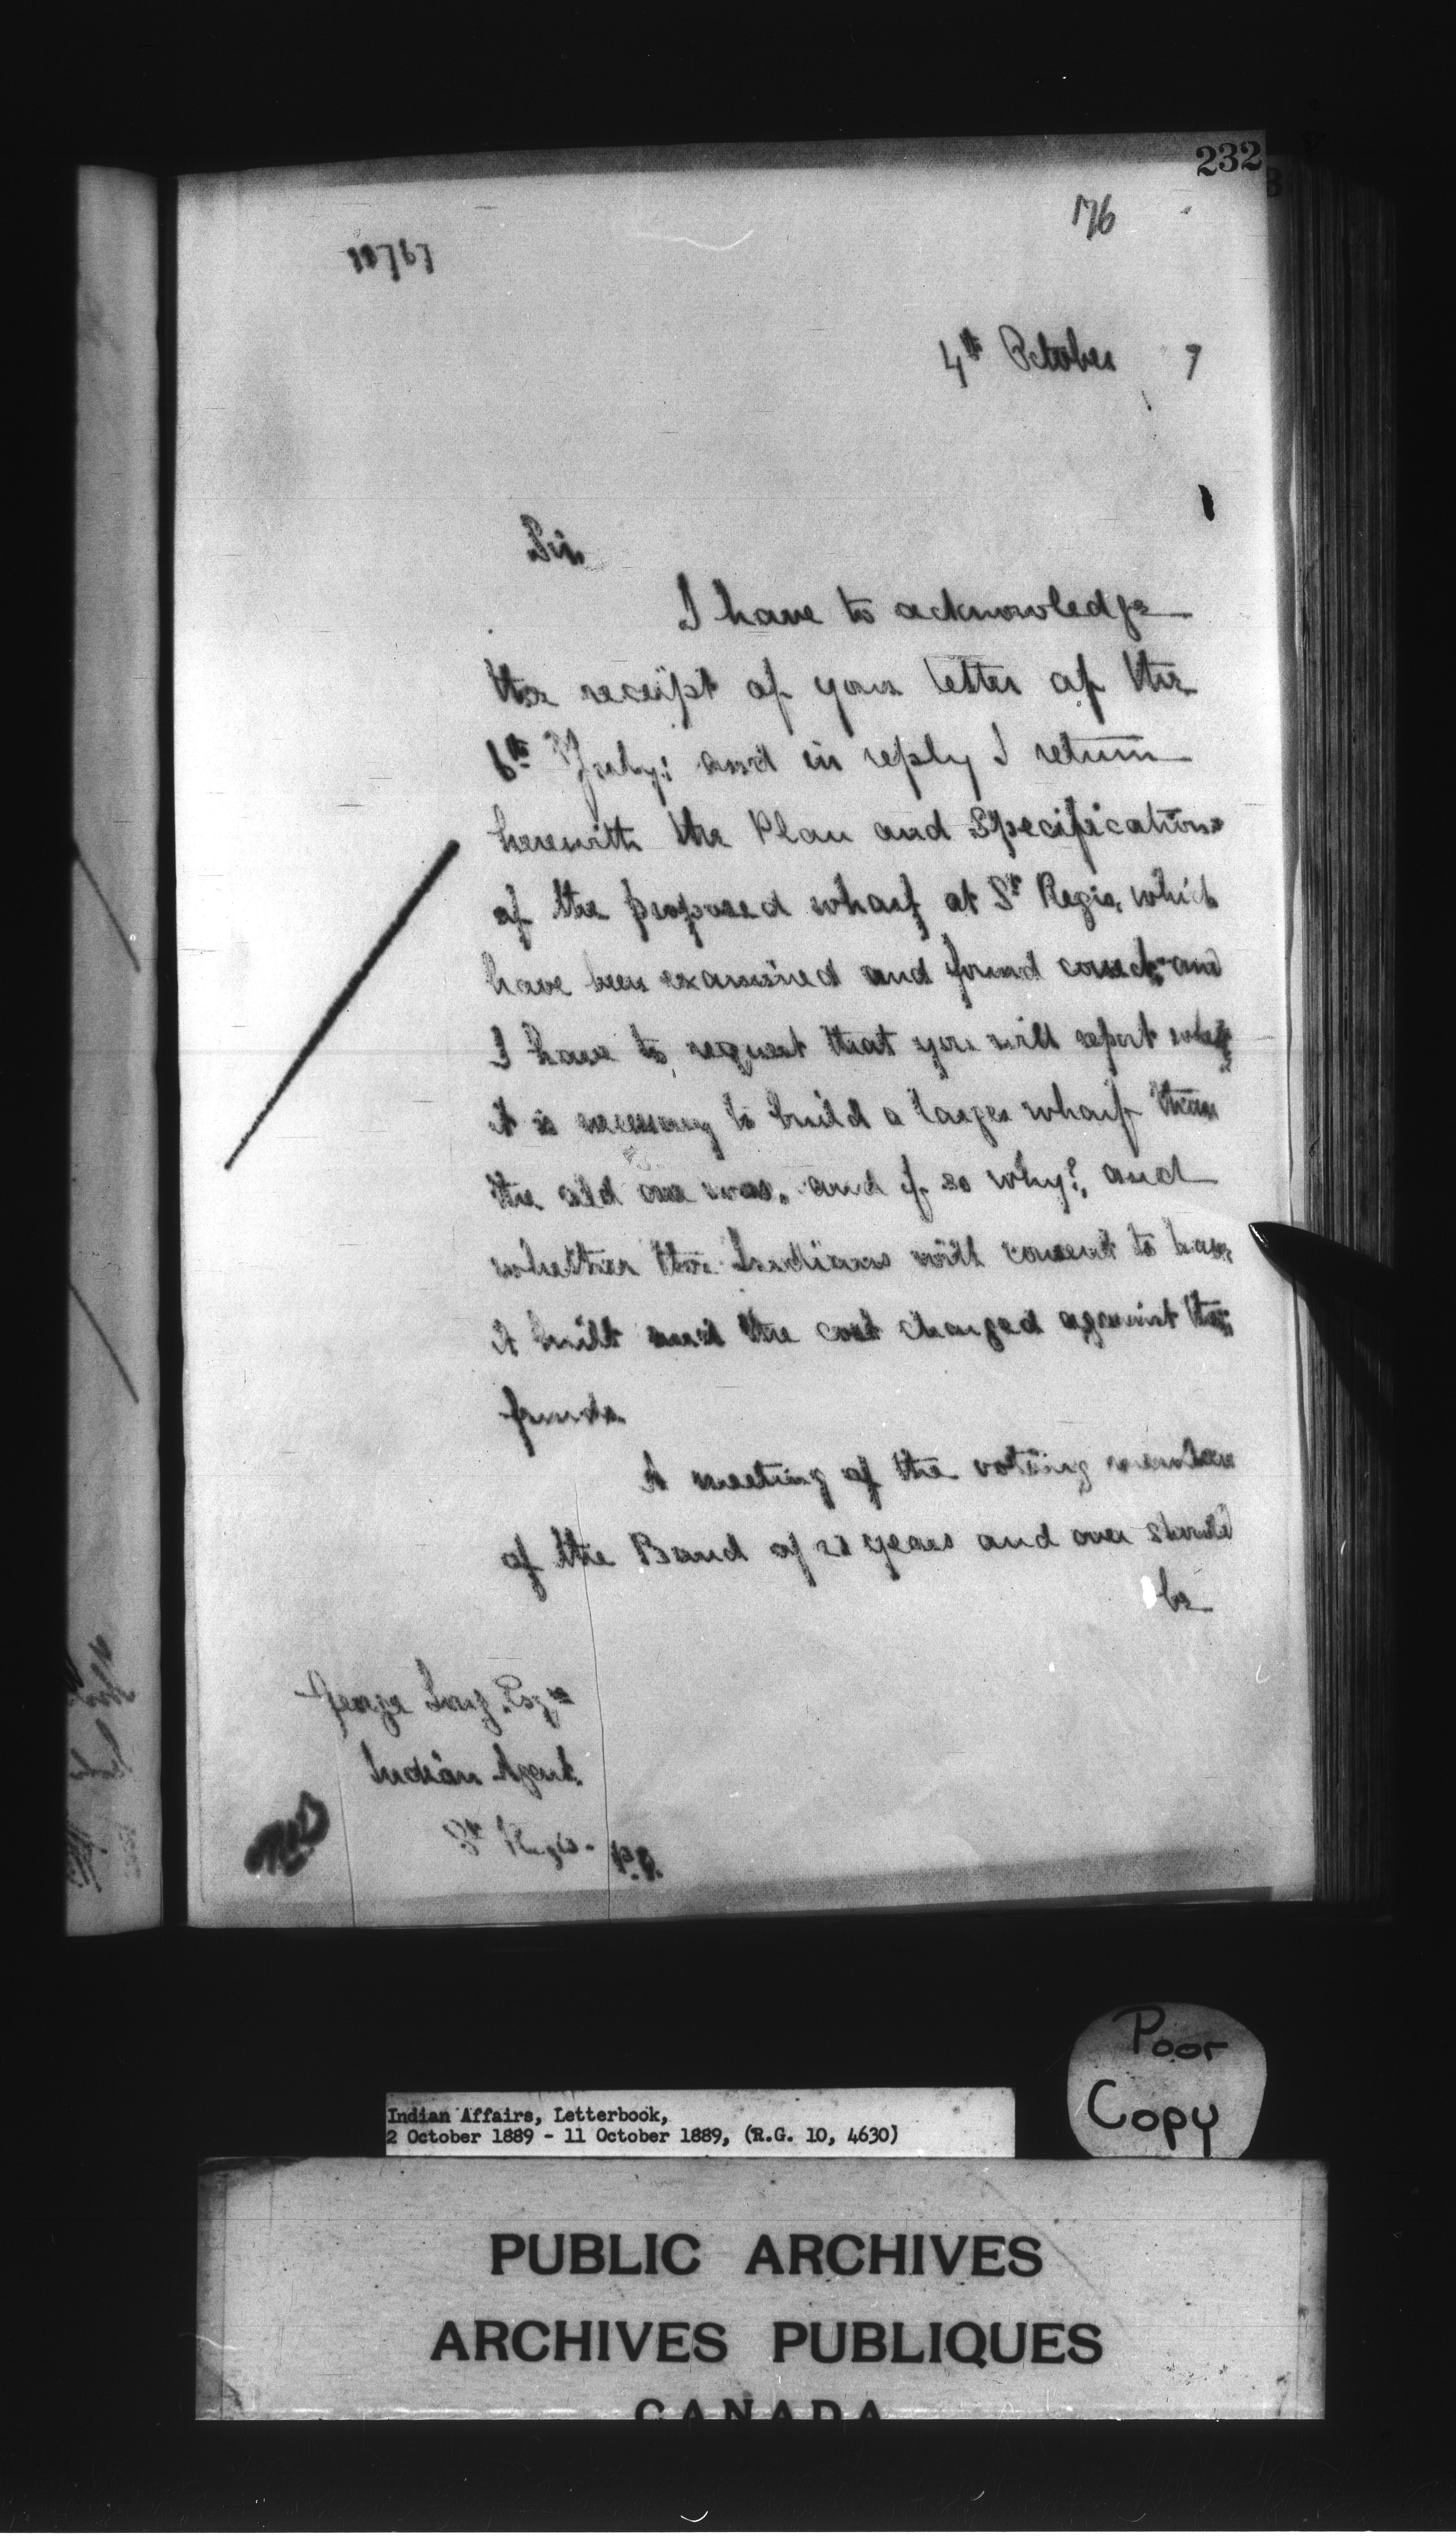 232
176
10767
4th October 9
Sir,
I have to acknowledge
the receipt of your letter of the
6th July; and in reply I return
herewith the Plan and Specifications
of the proposed wharf at St Regis, which
have been examined and found correct, and
I have to request that you will report
it is necessary to build a larger wharf than
the old one was, and if so why?, and
whether the Indians will consent to have
it built and the cost charged against their
funds.
A meeting of the voting members
of the Band of 21 years and over should
be
George Long, Esqre
Indian Agent.
St Regis - P.Q.
Indian Affairs, Letterbook,
2 October 1889 - 11 October 1889, (R.G. 10, 4630)
Poor
Copy
PUBLIC ARCHIVES
ARCHIVES PUBLIQUES
CANADA